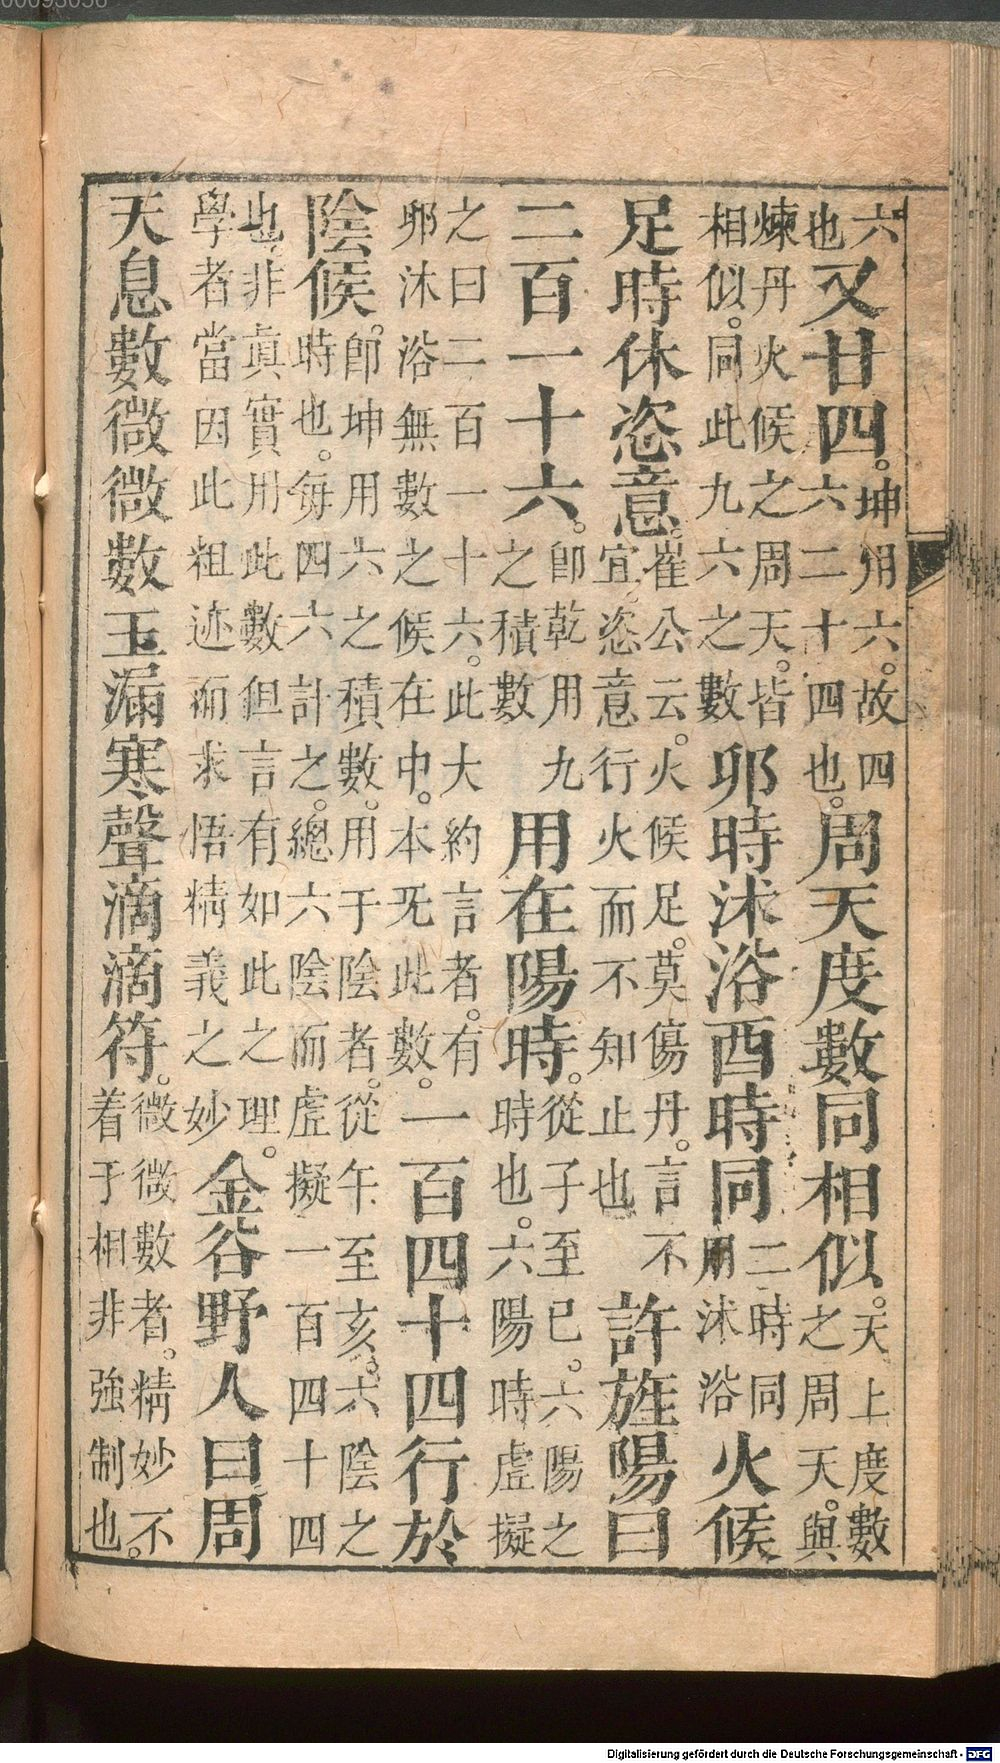 六也又廿四。坤用六。故四六二十四也。周天度數同相似。天上度數之周天。與
煉丹火候之周天。皆相似。同此九六之數卯時沐浴酉時同二時同用沐浴火候
足時休恣意。崔公云。火候足。莫傷丹。言不宜。恣意行火而不知止也許旌陽曰
二百一十六。卽乾用九之積數用在陽時。從子至巳。六陽之時也。六陽時虛擬
之曰二百一十六。此大約言者。有卯沐浴無數之候在中。本旡此數。一百四十四行於
陰候。卽坤用六之積數。用于陰者。從午至亥。六陰之時也。每四六計之。總六陰而虛擬一百四十四
也。非眞實用此數但言有如此之理。學者當因此粗迹而求悟精義之妙金谷野人曰周
天息數微微數玉漏寒聲滴滴符。微微數者。精妙不着于相非強制也。
Digitalisierung gefördert durch die Deutsche Forschungsgemeinschaft - DFG